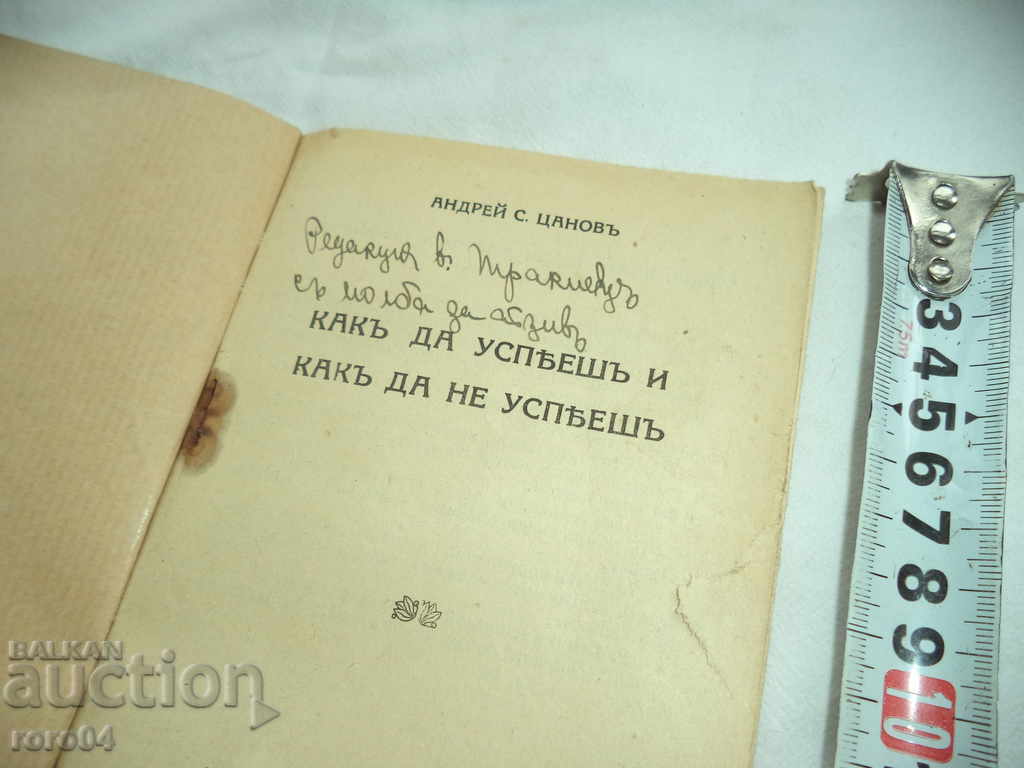 АНДРЕЙ С. ЦАНОВЪ
Редакция в. Тракиецъ
съ молба за отзивъ
КАКЪ ДА УСПѢЕШЪ И
КАКЪ ДА НЕ УСПѢЕШЪ
75m
3
4
5
6
7
8
9
10
BALKAN
auction
roro04